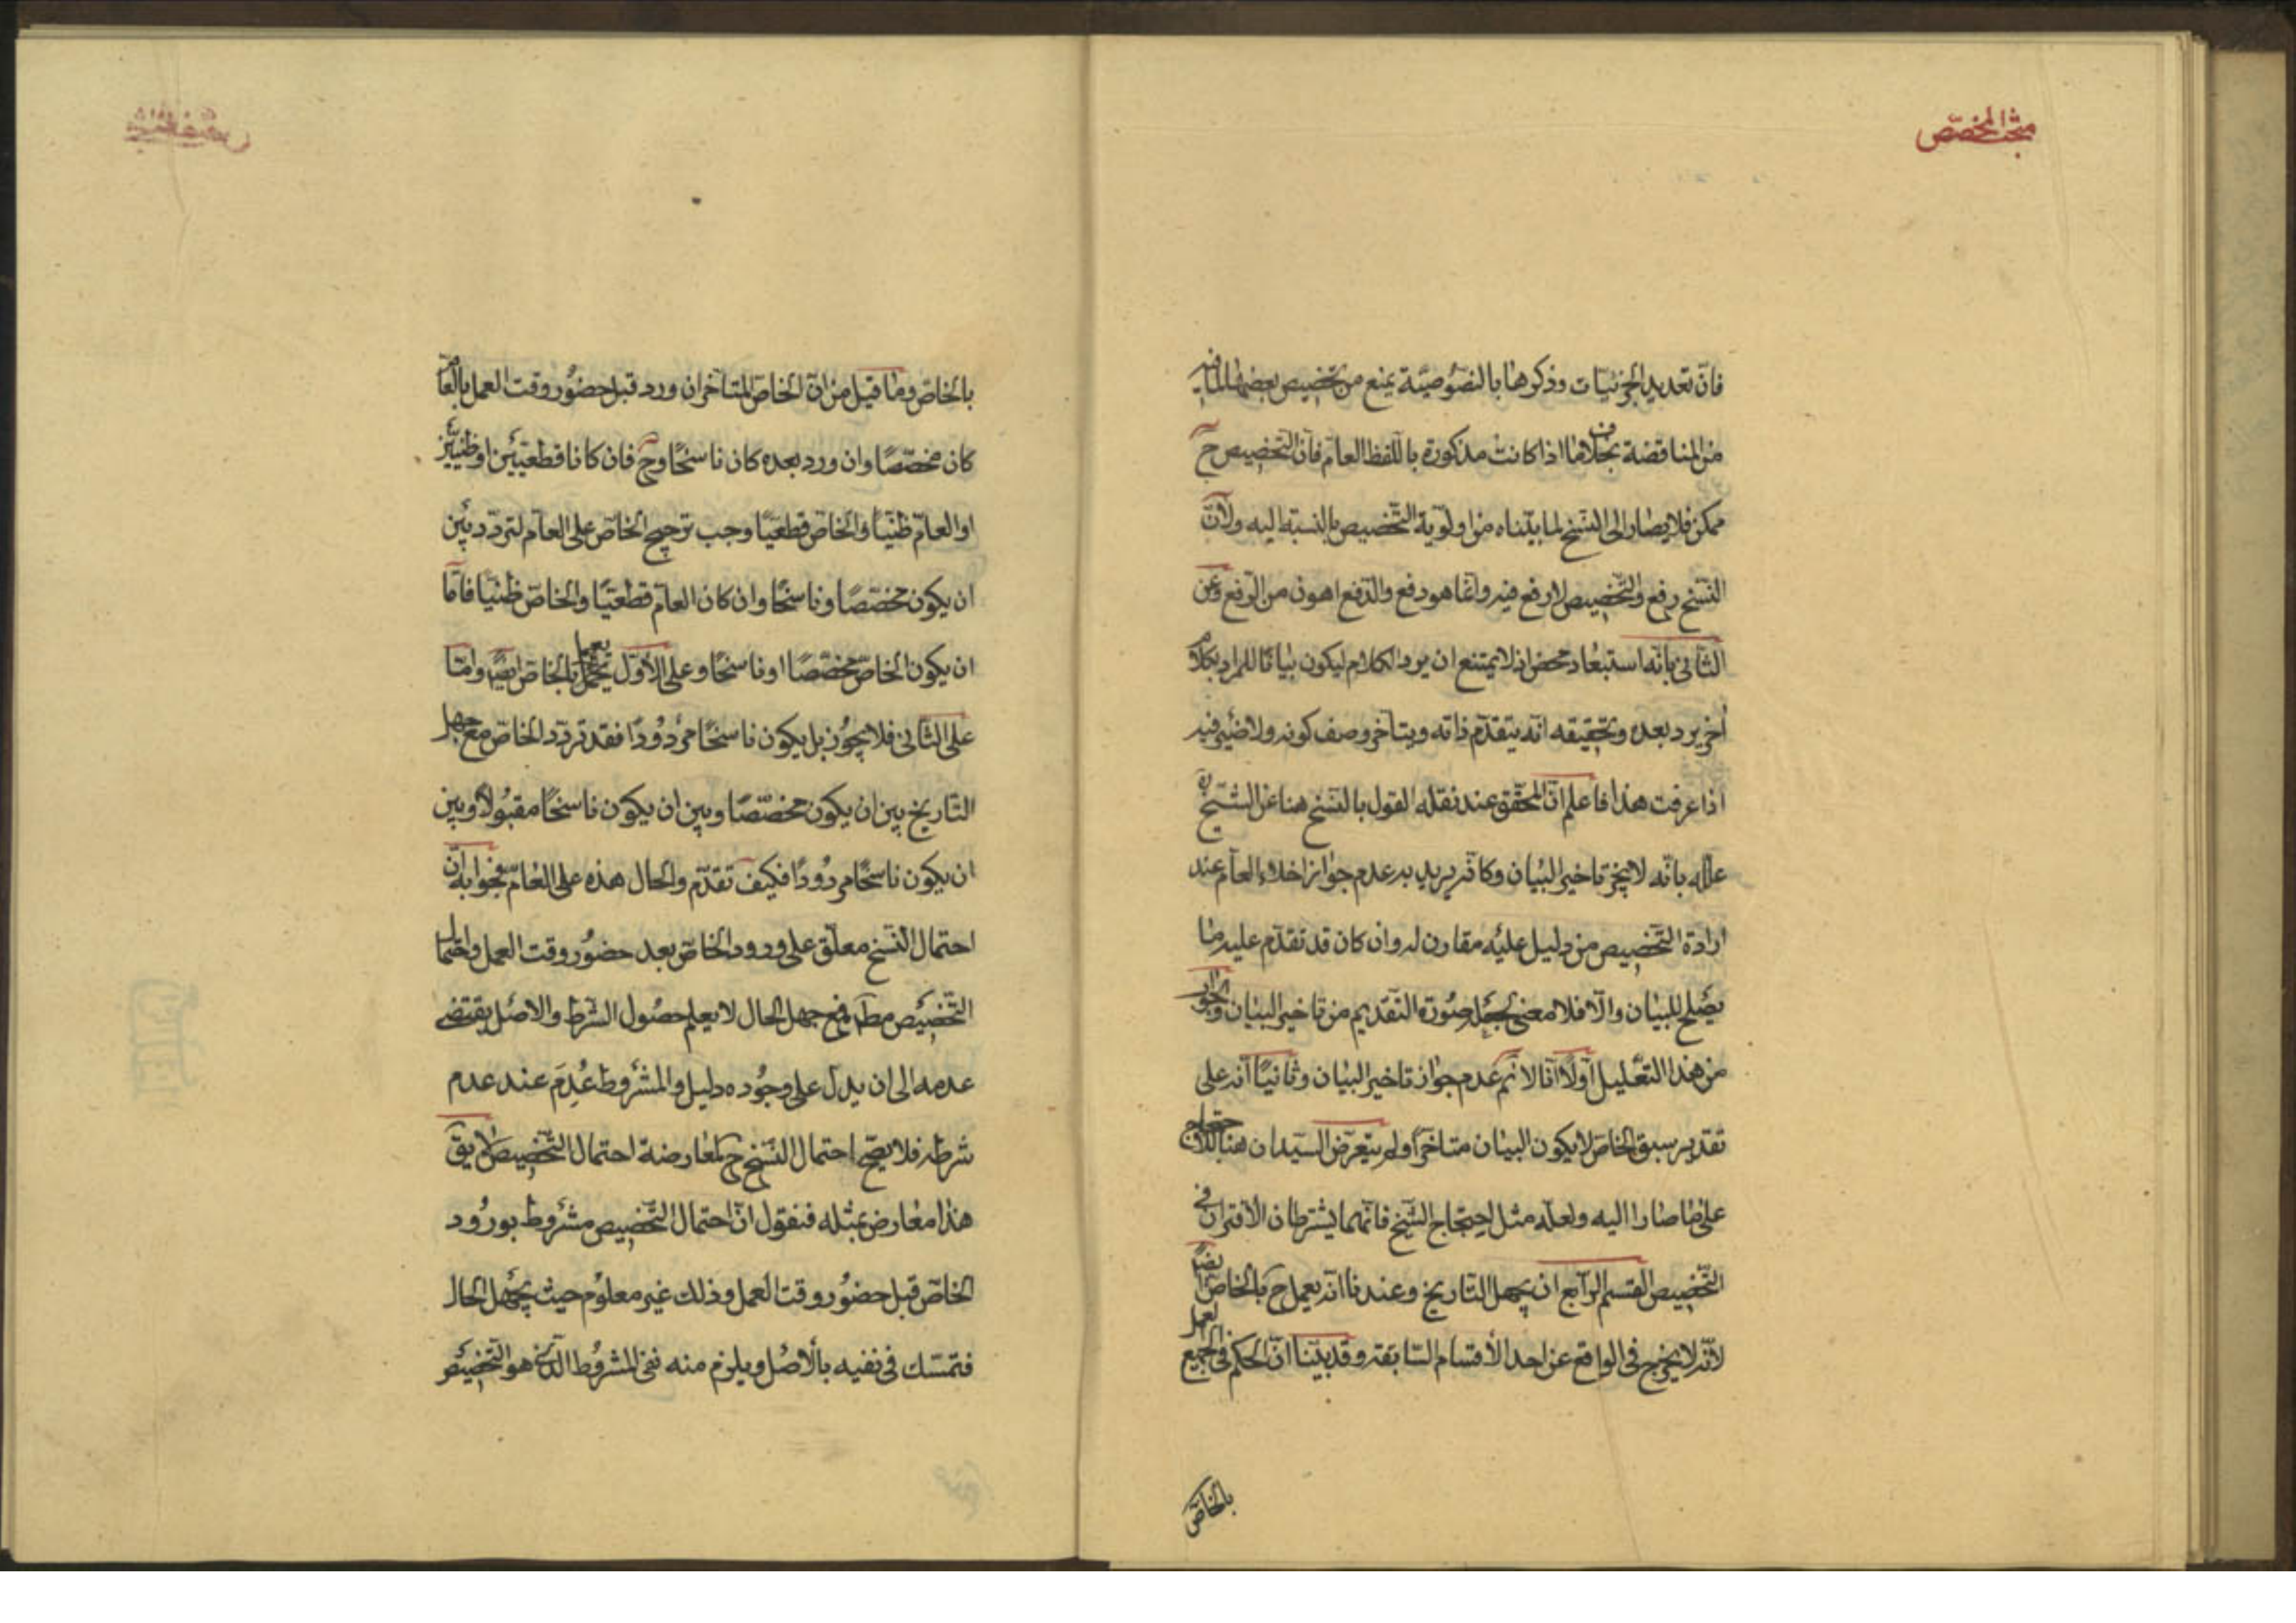 مبحث المخصص
فانّ تعديد الجزئيّات وذكرها بالنصّوصيّة يمنع من تخصيص بعضها لما فيه
من المناقضة بخلاف ما اذا كانت مذكورة باللفظ العامّ فانّ التخصيص ح
ممكن فلا يصار الى النسخ لما بيّناه من اولويّة التّخصيص بالنسبة اليه ولانّ
النّسخ رفع والتّخصيص لا رفع فيه وانّما هو دفع والدّفع اهون من الرّفع وعن
الثانى بانّه استبعاد محض اذ لا يمتنع ان يرد الكلام ليكون بيانا للمراد بكلام
اخر يرد بعده وتحقيقه انّه يتقدّم ذاته ويتأخر وصف كونه ولا ضير فيه
اذا عرفت هذا فاعلم انّ المحقّق عند نقله القول بالنسخ هنا عن الشّيخ ره
علّله بانّه لا يجز تاخير البيان وكانّه يريد به عدم جواز اخلاء العامّ عند
ارادة التّخصيص من دليل عليه مقارن له وان كان قد تقدّم عليه ما
يصلح للبيان والّا فلا معنى لجعل صورة التّقديم من تاخير البيان والجواب
من هذا التّعليل اوّلًا انّا لا نم عدم جواز تاخير البيان وثانيًا انّه على
تقدير سبق الخاصّ لا يكون البيان متاخّرًا ولم يتعرّض السيّدان هنا للاحتجاج
على ما صارا اليه ولعلّه مثل احتجاج الشّيخ فانّهما يشترطان الاقتران فى
التّخصيص القسم الرّابع ان يجهل التّاريخ وعندنا انّه يعمل ح بالخاصّ ايضًا
لانّه لا يخرج فى الواقع عن احد الأقسام السّابقة وقد بيّنّا انّ الحكم فى الجميع العمل
بالخاصّ
بالخاصّ وما قيل من انّ الخاصّ المتأخر ان ورد قبل حضور وقت العمل بالعامّ
كان مخصّصًا وان ورد بعده كان ناسخًا وح فان كانا قطعيّين او ظنيّين
او العامّ ظنيّا والخاصّ قطعيّا وجب ترجيح الخاصّ على العامّ لتردّد بين
ان يكون مخصّصًا وناسخًا وان كان العامّ قطعيّا والخاصّ ظنيّا فامّا
ان يكون الخاصّ مخصّصًا او ناسخًا وعلى الاوّل يعمل بالخاصّ ايضًا وامّا
على الثانى فلا يجوز بل يكون ناسخًا مردودًا فقد تردّد الخاصّ مع جهل
التّاريخ بين ان يكون مخصّصًا وبين ان يكون ناسخًا مقبولًا وبين
ان يكون ناسخًا مردودًا فكيف تقدّم والحال هذه على العامّ فجوابه انّ
احتمال النّسخ معلّق على ورود الخاصّ بعد حضور وقت العمل واحتمال
التّخصيص مطلقا فمع جهل الحال لا يعلم حصول الشّرط والاصل يقتضى
عدمه الى ان يدلّ على وجوده دليل والمشروط عُدِمَ عند عدم
شرطه فلا يصحّ احتمال النّسخ ح لمعارضة احتمال التّخصيص لا يق
هذا معارض بمثله فنقول انّ احتمال التّخصيص مشروط بورود
الخاصّ قبل حضور وقت العمل وذلك غير معلوم حيث يجهل الحال
فتمسّك فى نفيه بالاصل ويلزم منه نفى المشروط الّذى هو التّخصيص